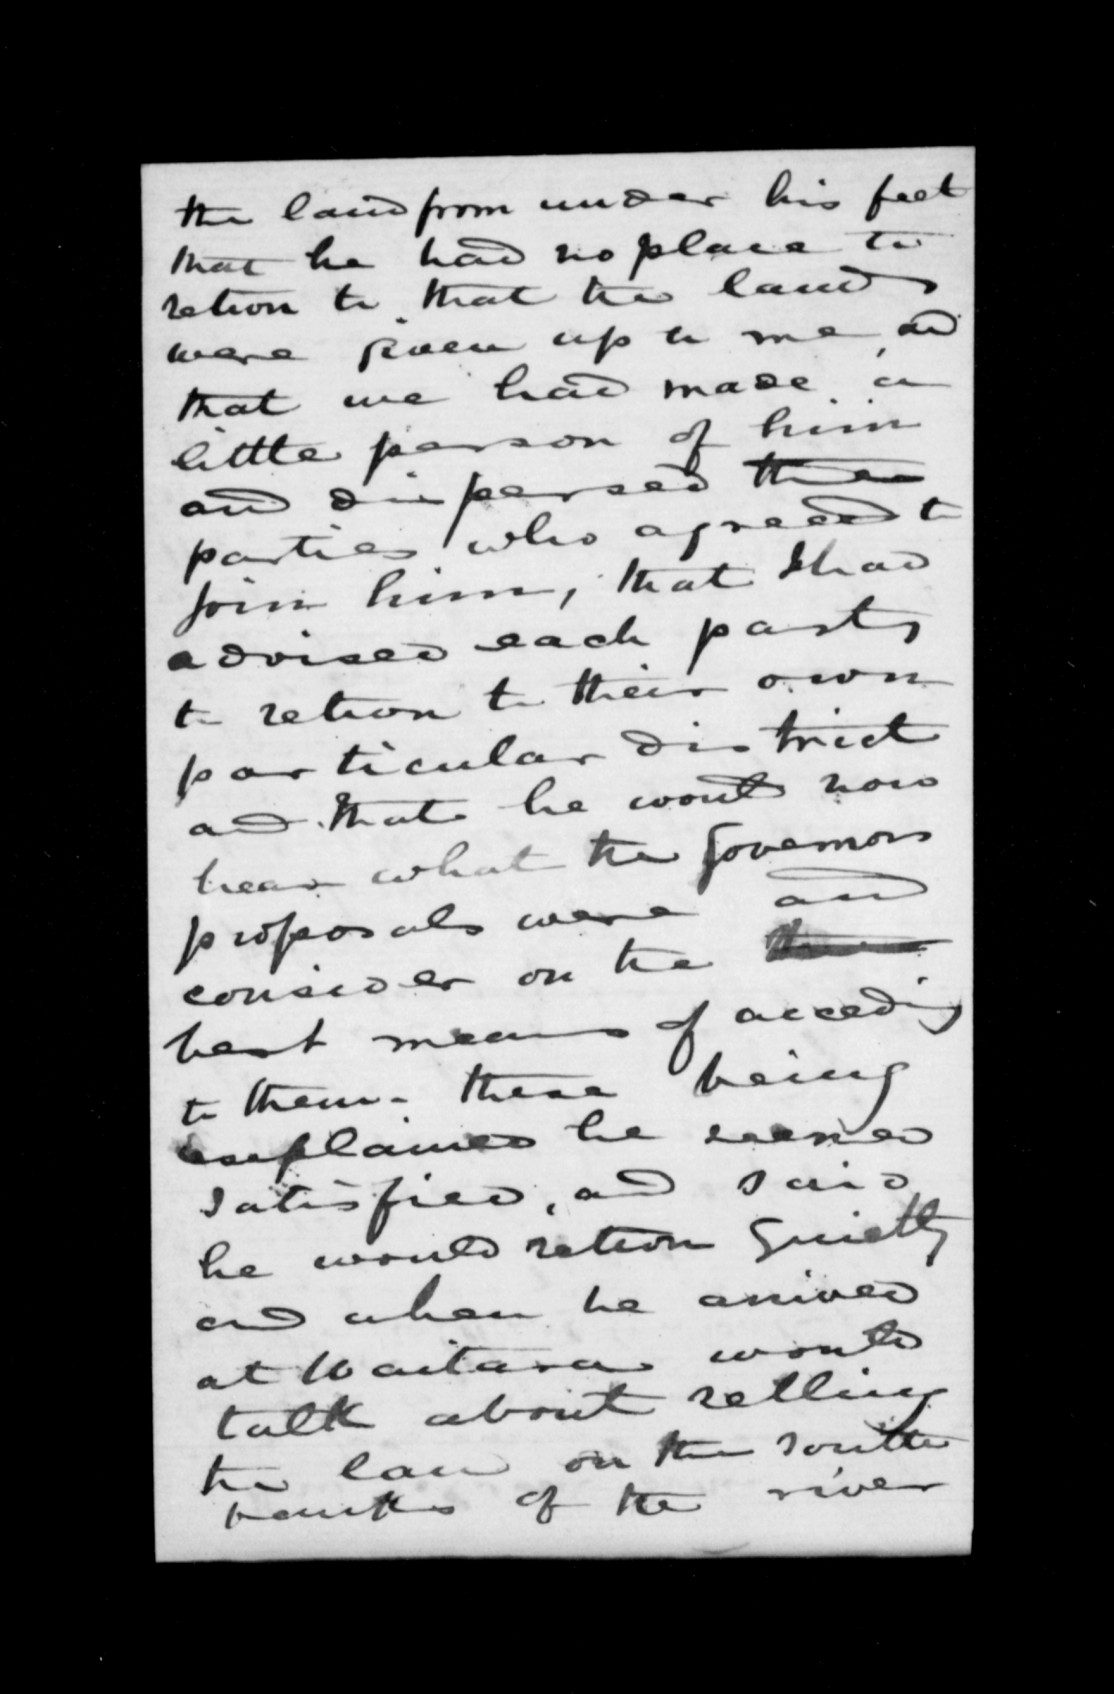 the land from under his feet
that he had no place to
return to that the lands
were given up to me, and
that we had made a
little person of him
and dispersed the
parties who agreed to
join him, that I had
advised each party
to return to their own
particular district
and that he would now
hear what the Governors
proposals were and
consider on the
best means of acceding
to them. these being
explained he seemed
satisfied, and said
he would return quietly
and when he arrived
at Waitara would
talk about selling
the land on the south
banks of the river